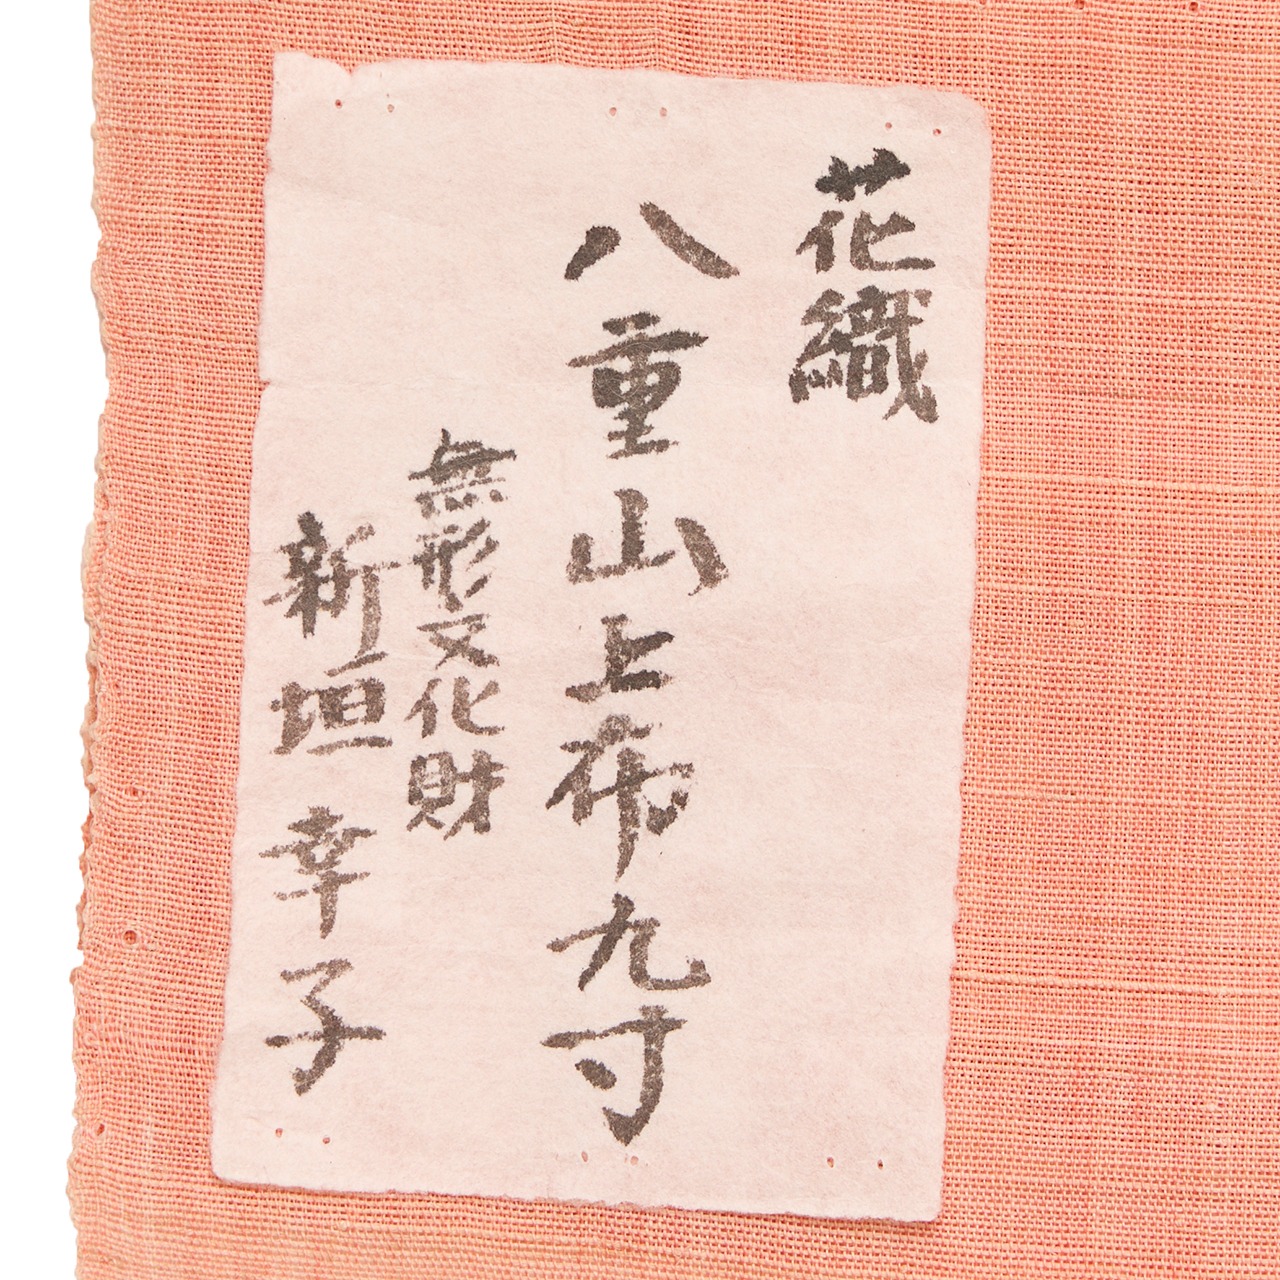 花織
八重山上布九寸
無形文化財
新垣幸子